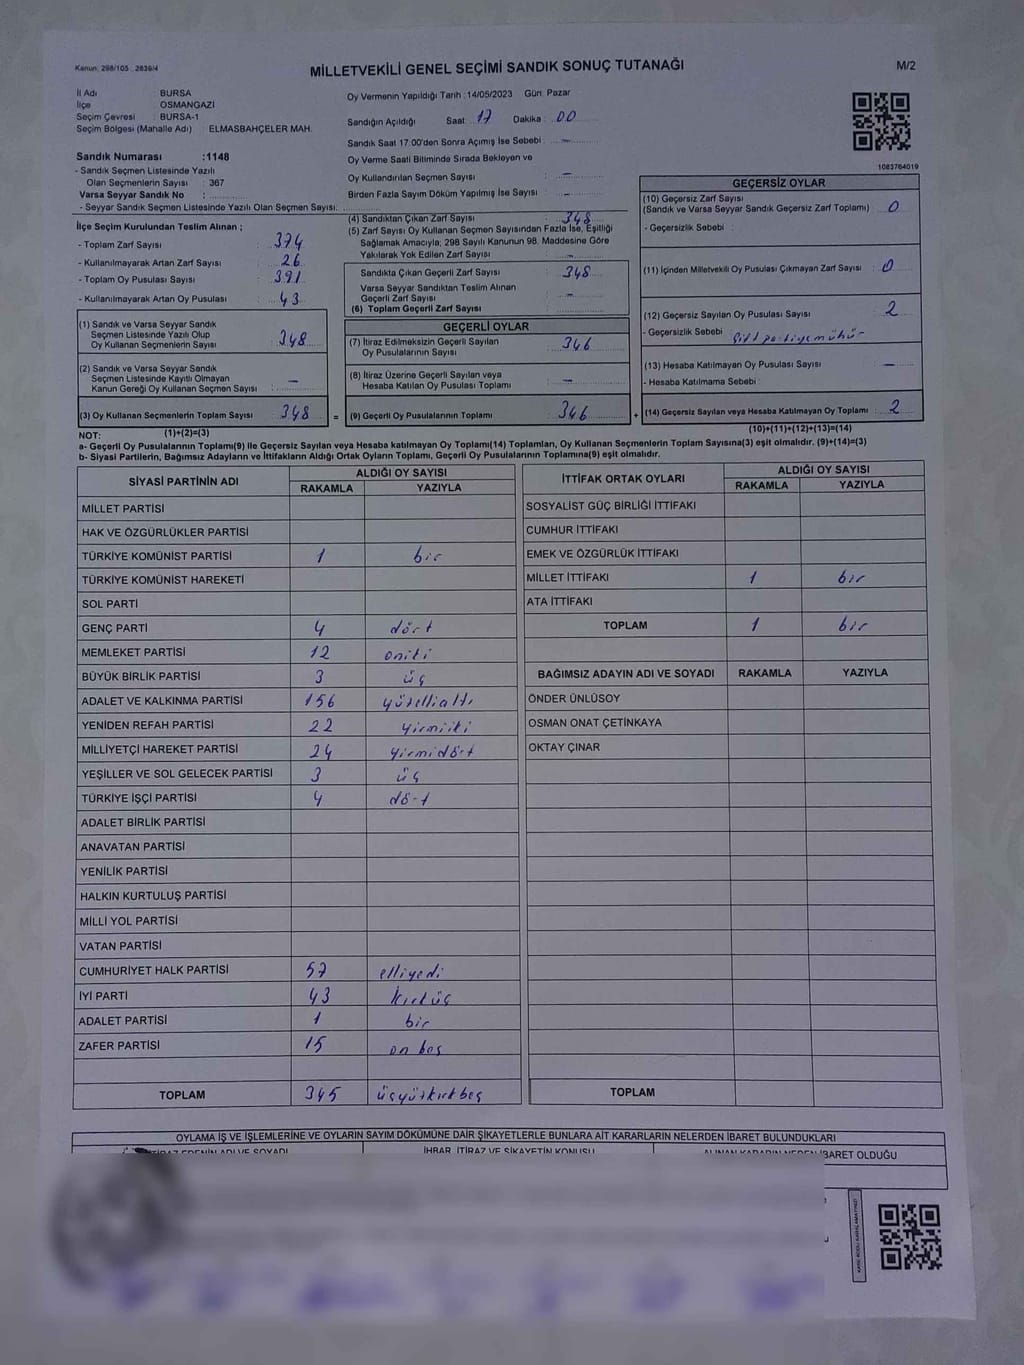 Kanun: 298/105 , 2839/4
MİLLETVEKİLİ GENEL SEÇİMİ SANDIK SONUÇ TUTANAĞI
M/2
İl Adı BURSA
İlçe OSMANGAZİ
Seçim Çevresi : BURSA-1
Seçim Bölgesi (Mahalle Adı) : ELMASBAHÇELER MAH.
Oy Vermenin Yapıldığı Tarih :14/05/2023 Gün: Pazar
Sandığın Açıldığı Saat : 17 Dakika : 00
Sandık Saat 17.00'den Sonra Açımış İse Sebebi : –
Oy Verme Saati Bitiminde Sırada Bekleyen ve
Oy Kullandırılan Seçmen Sayısı : –
Birden Fazla Sayım Döküm Yapılmış İse Sayısı : –
1083764019
Sandık Numarası :1148
- Sandık Seçmen Listesinde Yazılı
Olan Seçmenlerin Sayısı : 367
Varsa Seyyar Sandık No :
- Seyyar Sandık Seçmen Listesinde Yazılı Olan Seçmen Sayısı:
İlçe Seçim Kurulundan Teslim Alınan ;
- Toplam Zarf Sayısı : 374
- Kullanılmayarak Artan Zarf Sayısı : 26
- Toplam Oy Pusulası Sayısı : 391
- Kullanılmayarak Artan Oy Pusulası : 43
(1) Sandık ve Varsa Seyyar Sandık
Seçmen Listesinde Yazılı Olup
Oy Kullanan Seçmenlerin Sayısı : 348
(2) Sandık ve Varsa Seyyar Sandık
Seçmen Listesinde Kayıtlı Olmayan
Kanun Gereği Oy Kullanan Seçmen Sayısı : –
(3) Oy Kullanan Seçmenlerin Toplam Sayısı : 348 =
(1)+(2)=(3)
(4) Sandıktan Çıkan Zarf Sayısı : 348
(5) Zarf Sayısı Oy Kullanan Seçmen Sayısından Fazla İse, Eşitliği
Sağlamak Amacıyla; 298 Sayılı Kanunun 98. Maddesine Göre
Yakılarak Yok Edilen Zarf Sayısı : –
Sandıkta Çıkan Geçerli Zarf Sayısı : 348
Varsa Seyyar Sandıktan Teslim Alınan
Geçerli Zarf Sayısı : –
(6) Toplam Geçerli Zarf Sayısı :
GEÇERLİ OYLAR
(7) İtiraz Edilmeksizin Geçerli Sayılan
Oy Pusulalarının Sayısı : 346
(8) İtiraz Üzerine Geçerli Sayılan veya
Hesaba Katılan Oy Pusulası Toplamı : –
(9) Geçerli Oy Pusulalarının Toplamı : 346 +
GEÇERSİZ OYLAR
(10) Geçersiz Zarf Sayısı
(Sandık ve Varsa Seyyar Sandık Geçersiz Zarf Toplamı) : 0
- Geçersizlik Sebebi :
(11) İçinden Milletvekili Oy Pusulası Çıkmayan Zarf Sayısı : 0
(12) Geçersiz Sayılan Oy Pusulası Sayısı : 2
- Geçersizlik Sebebi : çift partiye mühür
(13) Hesaba Katılmayan Oy Pusulası Sayısı : –
- Hesaba Katılmama Sebebi :
(14) Geçersiz Sayılan veya Hesaba Katılmayan Oy Toplamı : 2
(10)+(11)+(12)+(13)=(14)
NOT:
a- Geçerli Oy Pusulalarının Toplamı(9) ile Geçersiz Sayılan veya Hesaba katılmayan Oy Toplamı(14) Toplamları, Oy Kullanan Seçmenlerin Toplam Sayısına(3) eşit olmalıdır. (9)+(14)=(3)
b- Siyasi Partilerin, Bağımsız Adayların ve İttifakların Aldığı Ortak Oyların Toplamı, Geçerli Oy Pusulalarının Toplamına(9) eşit olmalıdır.
SİYASİ PARTİNİN ADI ALDIĞI OY SAYISI
RAKAMLA YAZIYLA
MİLLET PARTİSİ
HAK VE ÖZGÜRLÜKLER PARTİSİ
TÜRKİYE KOMÜNİST PARTİSİ 1 bir
TÜRKİYE KOMÜNİST HAREKETİ
SOL PARTİ
GENÇ PARTİ 4 dört
MEMLEKET PARTİSİ 12 oniki
BÜYÜK BİRLİK PARTİSİ 3 üç
ADALET VE KALKINMA PARTİSİ 156 yüzellialtı
YENİDEN REFAH PARTİSİ 22 yirmiiki
MİLLİYETÇİ HAREKET PARTİSİ 24 yirmidört
YEŞİLLER VE SOL GELECEK PARTİSİ 3 üç
TÜRKİYE İŞÇİ PARTİSİ 4 dört
ADALET BİRLİK PARTİSİ
ANAVATAN PARTİSİ
YENİLİK PARTİSİ
HALKIN KURTULUŞ PARTİSİ
MİLLİ YOL PARTİSİ
VATAN PARTİSİ
CUMHURİYET HALK PARTİSİ 57 elliyedi
İYİ PARTİ 43 kırküç
ADALET PARTİSİ 1 bir
ZAFER PARTİSİ 15 on beş
TOPLAM 345 üçyüzkırkbeş
İTTİFAK ORTAK OYLARI ALDIĞI OY SAYISI
RAKAMLA YAZIYLA
SOSYALİST GÜÇ BİRLİĞİ İTTİFAKI
CUMHUR İTTİFAKI
EMEK VE ÖZGÜRLÜK İTTİFAKI
MİLLET İTTİFAKI 1 bir
ATA İTTİFAKI
TOPLAM 1 bir
BAĞIMSIZ ADAYIN ADI VE SOYADI RAKAMLA YAZIYLA
ÖNDER ÜNLÜSOY
OSMAN ONAT ÇETİNKAYA
OKTAY ÇINAR
TOPLAM
OYLAMA İŞ VE İŞLEMLERİNE VE OYLARIN SAYIM DÖKÜMÜNE DAİR ŞİKAYETLERLE BUNLARA AİT KARARLARIN NELERDEN İBARET BULUNDUKLARI
İTİRAZ EDENİN ADI VE SOYADI İHBAR, İTİRAZ VE ŞİKAYETİN KONUSU ALINAN KARARIN NEDEN İBARET OLDUĞU